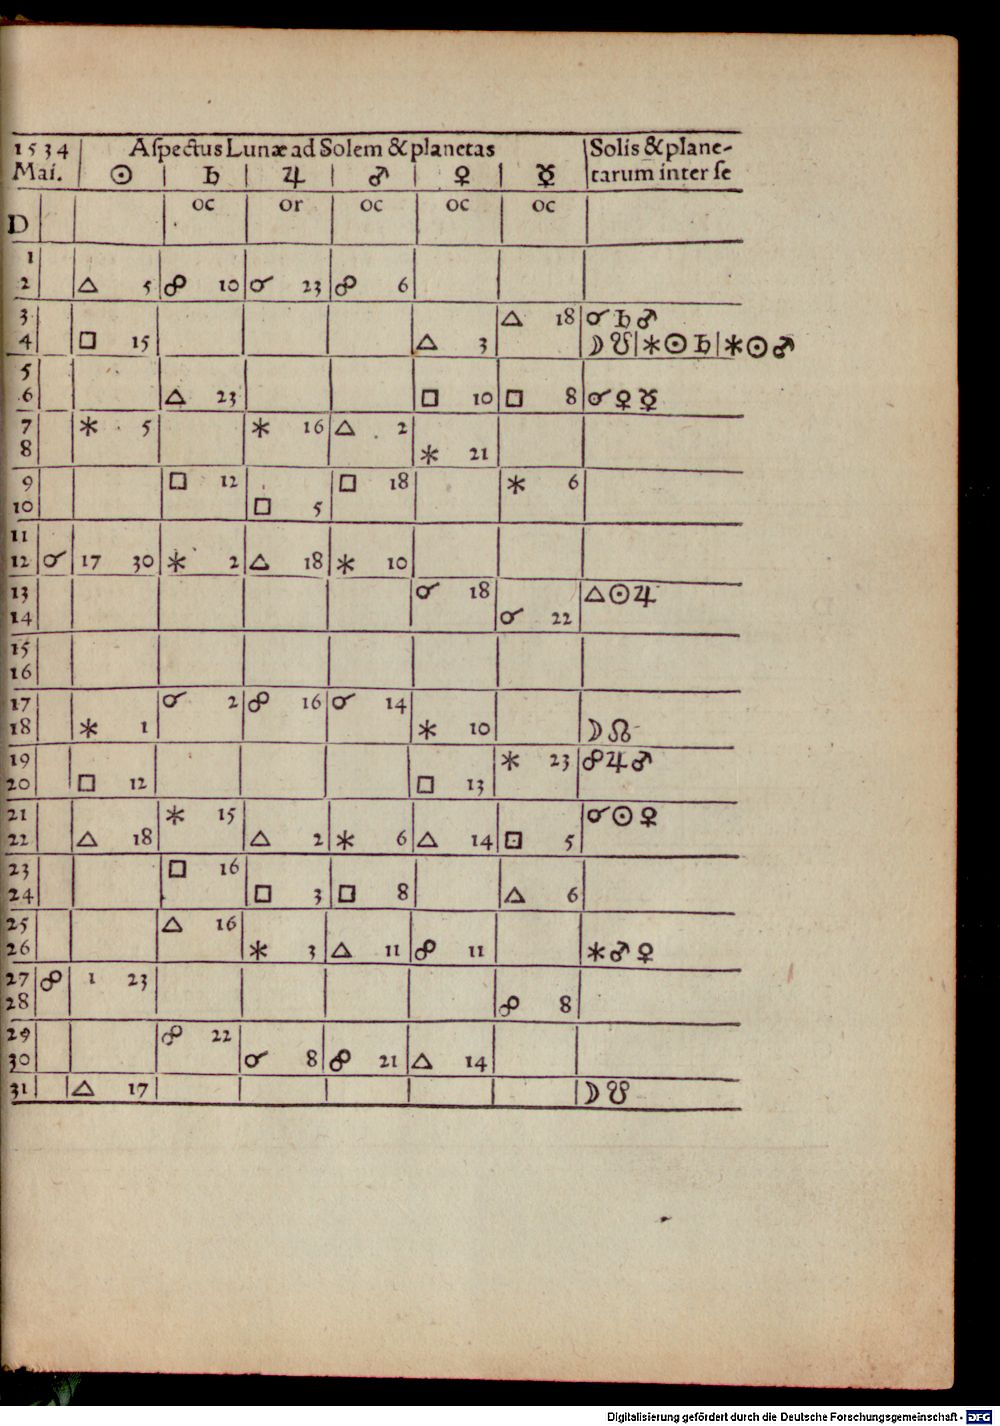 1534 Aſpectus Lunæ ad Solem & planetas Solis & plane-
Mai. ☉ ♄ ♃ ♂ ♀ ☿ tarum inter ſe
D oc or oc oc oc
1
2 △ 5 ☍ 10 ☌ 23 ☍ 6
3 △ 18 ☌ ♄ ♂
4 □ 15 △ 3 ☽ ☋ | ⚹ ☉ ♄ | ⚹ ☉ ♂
5
6 △ 23 □ 10 □ 8 ☌ ♀ ☿
7 ⚹ 5 ⚹ 16 △ 2
8 ⚹ 21
9 □ 12 □ 18 ⚹ 6
10 □ 5
11
12 ☌ 17 30 ⚹ 2 △ 18 ⚹ 10
13 ☌ 18 △ ☉ ♃
14 ☌ 22
15
16
17 ☌ 2 ☍ 16 ☌ 14
18 ⚹ 1 ⚹ 10 ☽ ☊
19 ⚹ 23 ☍ ♃ ♂
20 □ 12 □ 13
21 ⚹ 15 ☌ ☉ ♀
22 △ 18 △ 2 ⚹ 6 △ 14 □ 5
23 □ 16
24 □ 3 □ 8 △ 6
25 △ 16
26 ⚹ 3 △ 11 ☍ 11 ⚹ ♂ ♀
27 ☍ 1 23
28 ☍ 8
29 ☍ 22
30 ☌ 8 ☍ 21 △ 14
31 △ 17 ☽ ☋
Digitalisierung gefördert durch die Deutsche Forschungsgemeinschaft - DFG